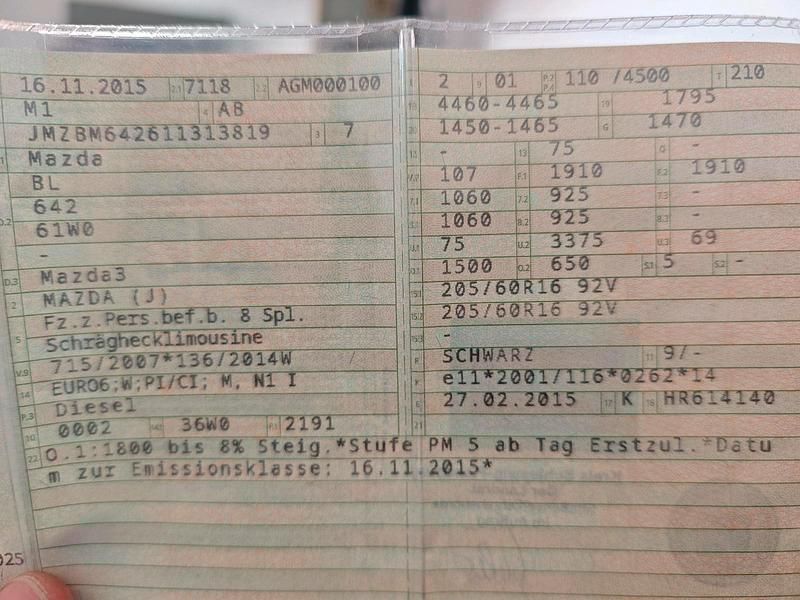 16.11.2015 2.1 7118 2.2 AGM000100
M1 4 AB
JMZBM642611313819 3 7
Mazda
BL
D.2 642
61W0
-
D.3 Mazda3
2 MAZDA (J)
Fz.z.Pers.bef.b. 8 Spl.
5 Schräghecklimousine
V.9 715/2007*136/2014W /
14 EURO6;W;PI/CI; M, N1 I
P.3 Diesel
10 0002 14.1 36W0 P.1 2191
2 9 01 P.2 P.4 110 /4500 T 210
18 4460-4465 19 1795
20 1450-1465 G 1470
12 - 13 75 Q -
V.7 107 F.1 1910 F.2 1910
7.1 1060 7.2 925 7.3 -
8.1 1060 8.2 925 8.3 -
U.1 75 U.2 3375 U.3 69
O.1 1500 O.2 650 S.1 5 S.2 -
15.1 205/60R16 92V
15.2 205/60R16 92V
15.3 -
R SCHWARZ 11 9/-
K e11*2001/116*0262*14
6 27.02.2015 17 K 16 HR614140
21
22 O.1:1800 bis 8% Steig.*Stufe PM 5 ab Tag Erstzul.*Datu
m zur Emissionsklasse: 16.11.2015*
025